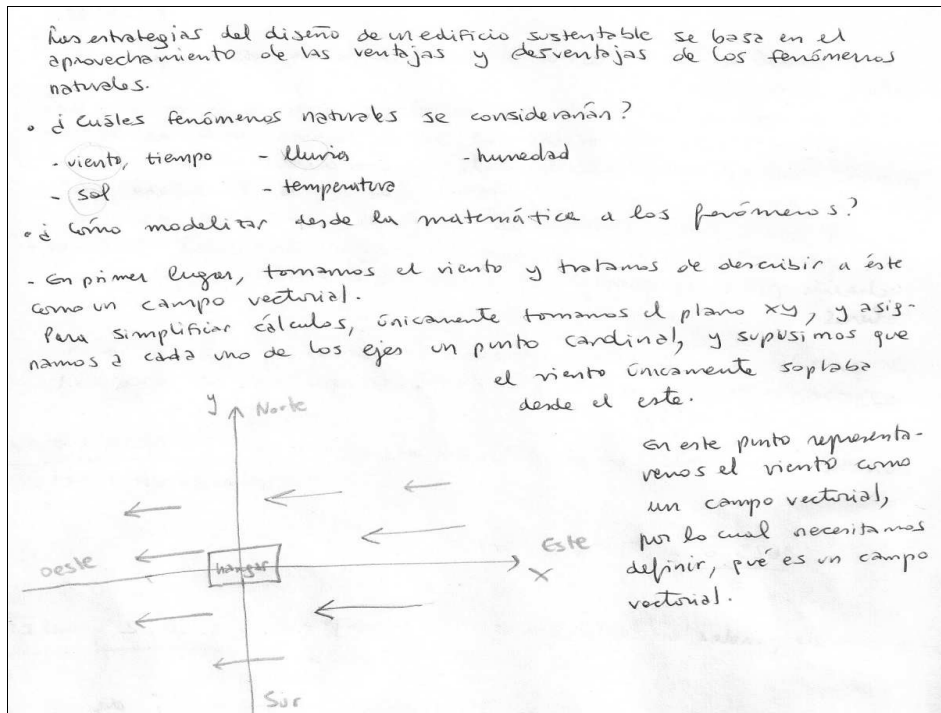 Las estrategias del diseño de un edificio sustentable se basa en el
aprovechamiento de las ventajas y desventajas de los fenómenos
naturales.
• ¿Cuáles fenómenos naturales se considerarán?
- viento, tiempo - lluvia - humedad
- sol - temperatura
• ¿Cómo modelizar desde la matemática a los fenómenos?
- En primer lugar, tomamos el viento y tratamos de describir a éste
como un campo vectorial.
Para simplificar cálculos, únicamente tomamos el plano xy, y asig-
namos a cada uno de los ejes un punto cardinal, y supusimos que
el viento únicamente soplaba
desde el este.
y Norte
Oeste
hangar
Este
X
Sur
En este punto representa-
remos el viento como
un campo vectorial,
por lo cual necesitamos
definir, qué es un campo
vectorial.